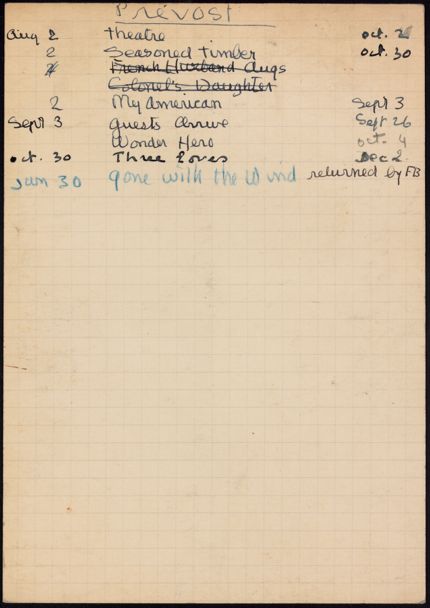 Prévost
Aug 2 Theatre Oct. 28
2 Seasoned Timber Oct. 30
2 French Husband Augs
Colonel's Daughter
2 My American Sept 3
Sept 3 Guests Arrive Sept 26
Wonder Hero Oct. 4
Oct. 30 Three Loves Dec 2
Jan 30 Gone with the Wind returned by FB